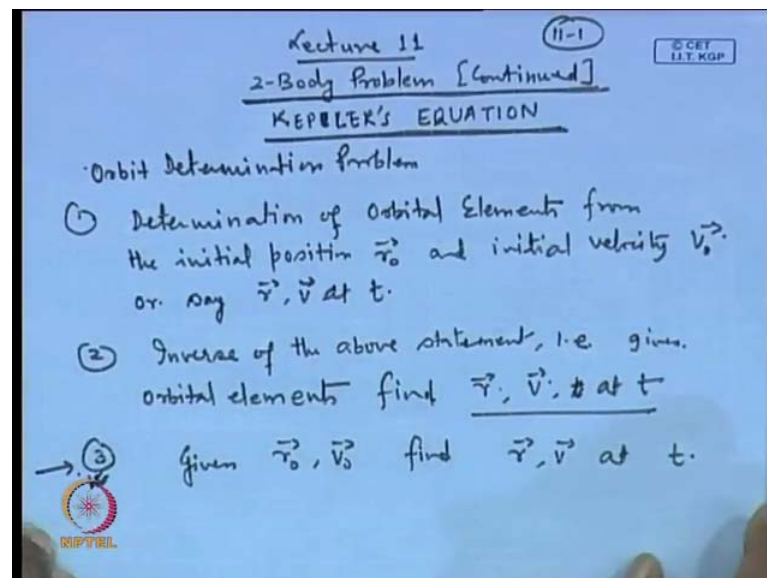 Lecture 11
11-1
© CET
I.I.T. KGP
2-Body Problem [Continued]
KEPLER'S EQUATION
Orbit Determination Problem
① Determination of Orbital Elements from
the initial position r₀⃗ and initial velocity V₀⃗.
or. say r⃗, v⃗ at t.
② Inverse of the above statement, i.e given.
orbital elements find r⃗, V⃗, at t
→ ③ Given r₀⃗, v₀⃗ find r⃗, v⃗ at t.
NPTEL